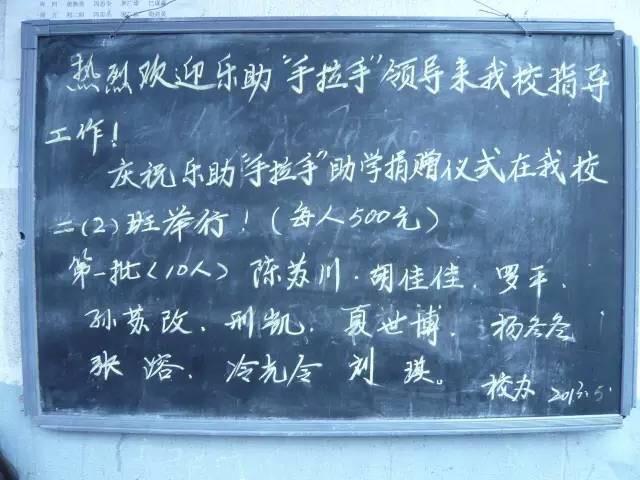 热烈欢迎乐助"手拉手"领导来我校指导
工作!
庆祝乐助"手拉手"助学捐赠仪式在我校
二(2)班举行!(每人500元)
第一批(10人) 陈苏川.胡佳佳.罗平.
孙苏改.刑凯.夏世博.杨冬冬
张溶.冷允令 刘琪。
校办 2013.5.